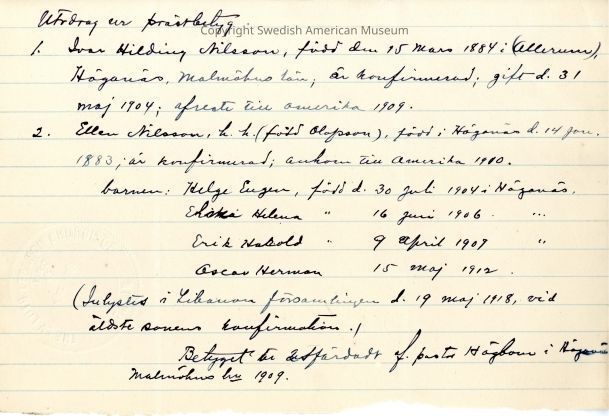 Utdrag ur prästbetyg
Copyright Swedish American Museum
1. Ivar Hilding Nilsson, född den 15 mars 1884 i (Allerum),
Höganäs, Malmöhus län; är konfirmerad; gift d. 31
maj 1904; afreste till Amerika 1909.
2. Ellen Nilsson, h. h. (född Olofsson), född i Höganäs d. 14 jan.
1883; är konfirmerad; ankom till Amerika 1910.
barnen: Helge Eugen, född d. 30 juli 1904 i Höganäs.
Helena " 16 juni 1906. "
Erik Harold 9 april 1909 "
Oscar Herman 15 maj 1912.
(Inlystes i Libanon församlingen d. 19 maj 1918, vid
äldste sonens konfirmation.)
Betyget är utfärdadt af pastor i Höganäs
Malmöhus län 1909.